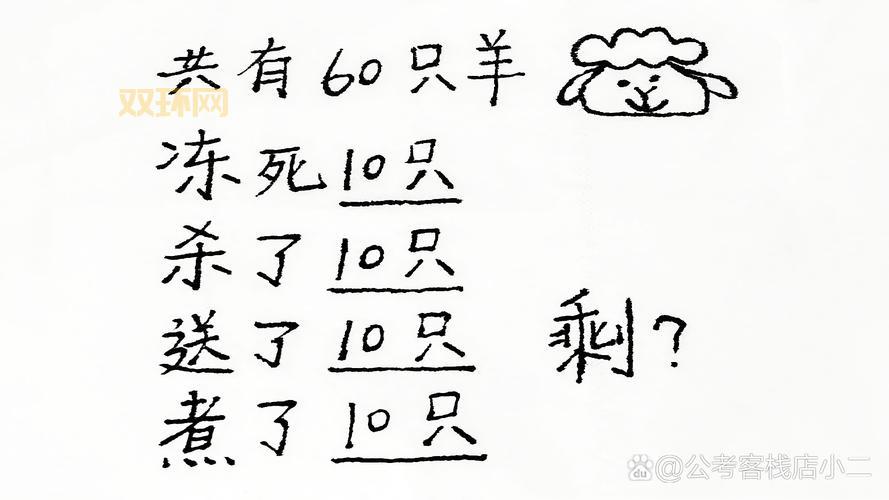 共有60只羊
双环网
冻死10只
杀了10只
送了10只
剩？
煮了10只
du @公考客栈店小二